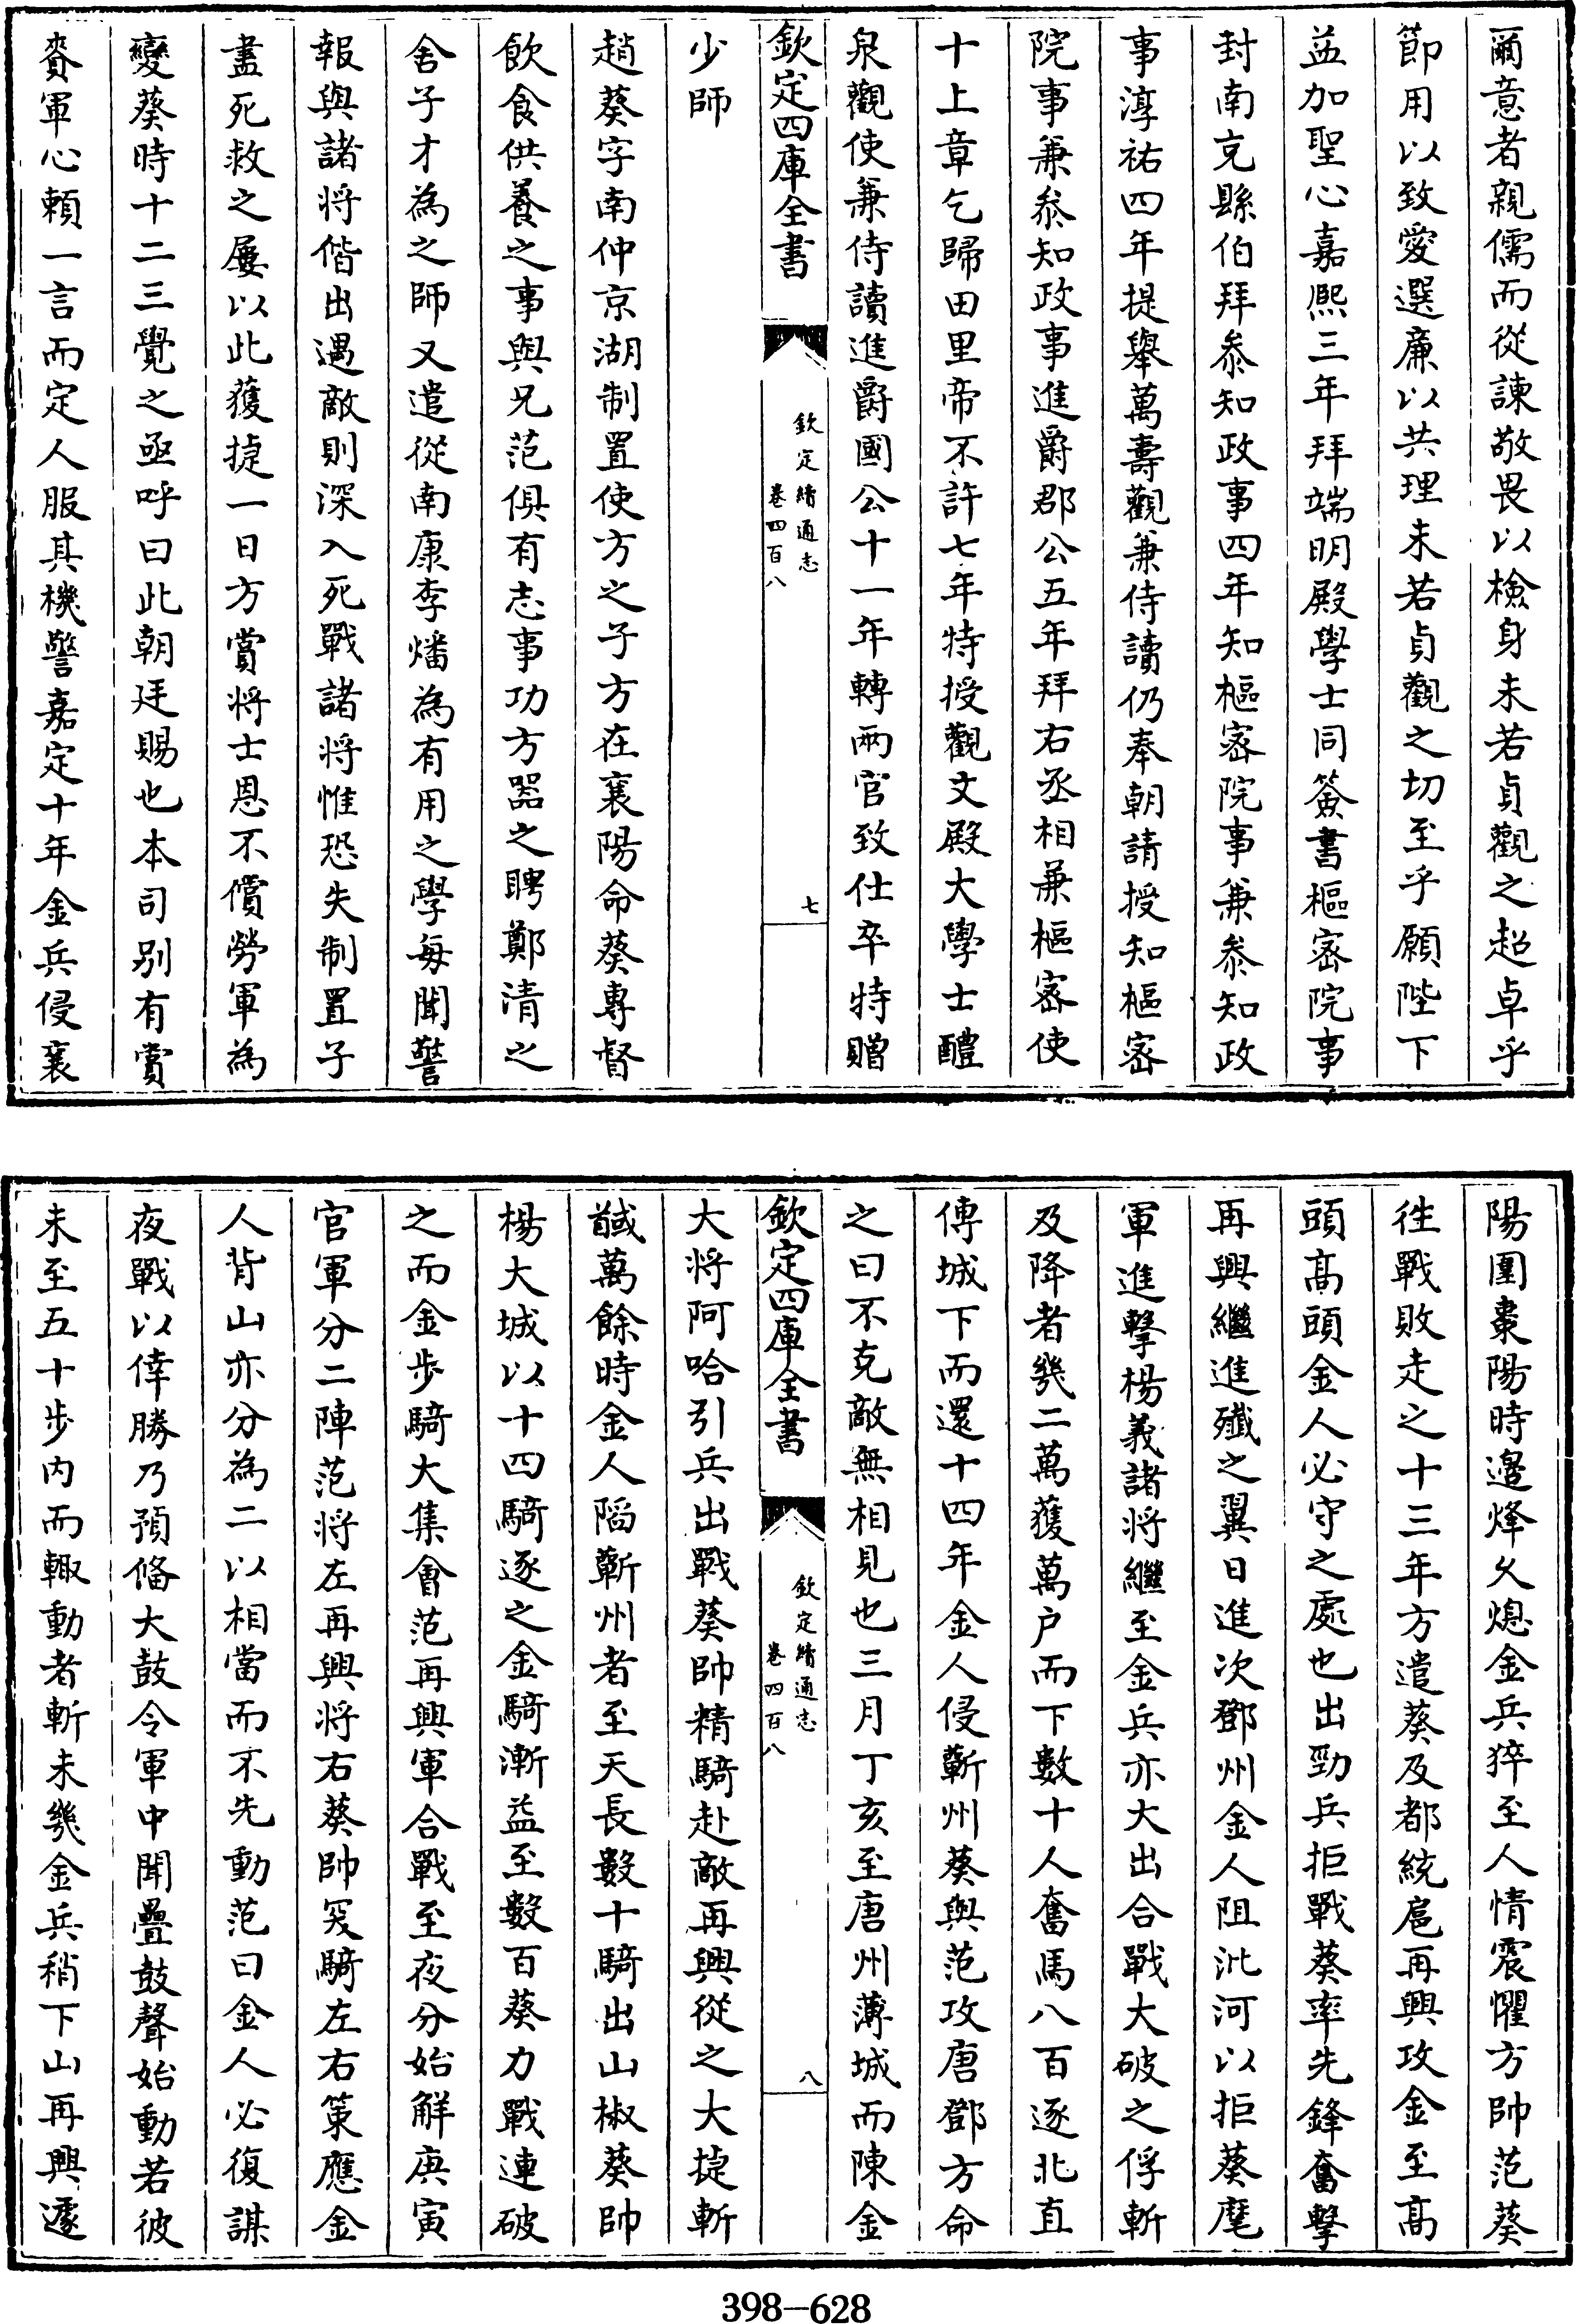 爾意者親儒而從諫敬畏以檢身未若貞觀之超卓乎
節用以致愛選廉以共理未若貞觀之切至乎願陛下
益加聖心嘉熙三年拜端明殿學士同簽書樞密院事
封南充縣伯拜參知政事四年知樞密院事兼參知政
事淳祐四年提舉萬壽觀兼侍讀仍奉朝請授知樞密
院事兼參知政事進爵郡公五年拜右丞相兼樞密使
十上章乞歸田里帝不許七年特授觀文殿大學士醴
泉觀使兼侍讀進爵國公十一年轉兩官致仕卒特贈
欽定四庫全書
欽定續通志
卷四百八
七
少師
趙葵字南仲京湖制置使方之子方在襄陽命葵專督
飲食供養之事與兄范俱有志事功方器之聘鄭清之
舍子才為之師又遣從南康李燔為有用之學每聞警
報與諸將偕出遇敵則深入死戰諸將惟恐失制置子
盡死救之屢以此獲捷一日方賞將士恩不償勞軍為
變葵時十二三覺之亟呼曰此朝廷賜也本司别有賞
賚軍心賴一言而定人服其機警嘉定十年金兵侵襄
陽圍棗陽時邊烽久熄金兵猝至人情震懼方帥范葵
往戰敗走之十三年方遣葵及都統扈再興攻金至高
頭高頭金人必守之處也出勁兵拒戰葵率先鋒奮擊
再興繼進殲之翼日進次鄧州金人阻沘河以拒葵麾
軍進擊楊義諸將繼至金兵亦大出合戰大破之俘斬
及降者幾二萬獲萬户而下數十人奮馬八百逐北直
傳城下而還十四年金人侵蘄州葵與范攻唐鄧方命
之曰不克敵無相見也三月丁亥至唐州薄城而陳金
欽定四庫全書
欽定續通志
卷四百八
八
大將阿哈引兵出戰葵帥精騎赴敵再興從之大捷斬
馘萬餘時金人䧟蘄州者至天長數十騎出山椒葵帥
楊大城以十四騎逐之金騎漸益至數百葵力戰連破
之而金步騎大集會范再興軍合戰至夜分始解庚寅
官軍分二陣范將左再興將右葵帥突騎左右策應金
人背山亦分為二以相當而不先動范曰金人必復謀
夜戰以倖勝乃預備大鼓令軍中聞疊鼓聲始動若彼
未至五十步内而輙動者斬未幾金兵稍下山再興遽
398—628